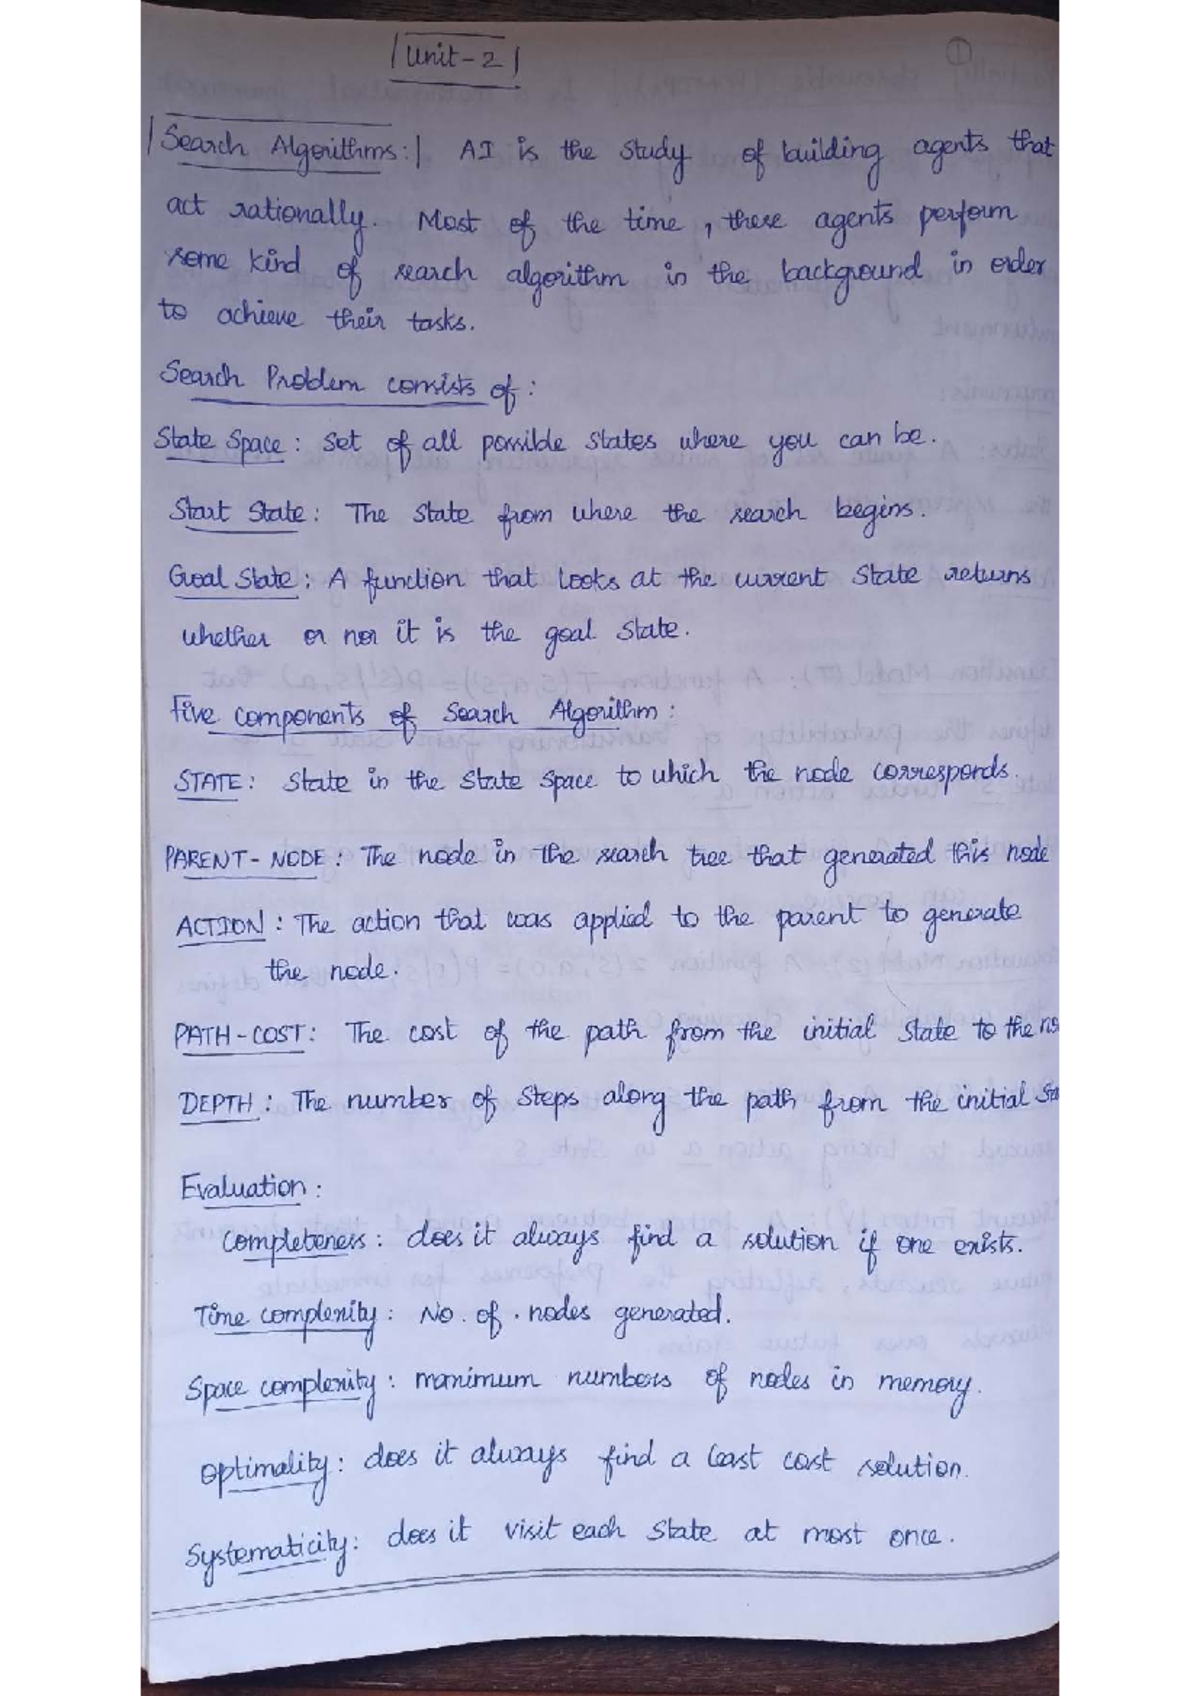 Unit-2
1
Search Algorithms: AI is the study of building agents that
act rationally. Most of the time, these agents perform
some kind of search algorithm in the background in order
to achieve their tasks.
Search Problem consists of:
State Space: Set of all possible states where you can be.
Start State: The state from where the search begins.
Goal State: A function that looks at the current state returns
whether or nor it is the goal state.
Five components of Search Algorithm:
STATE: State in the state space to which the node corresponds.
PARENT-NODE: The node in the search tree that generated this node
ACTION: The action that was applied to the parent to generate
the node.
PATH-COST: The cost of the path from the initial state to the
DEPTH: The number of steps along the path from the initial
Evaluation:
Completeness: does it always find a solution if one exists.
Time complexity: No. of. nodes generated.
Space complexity: maximum numbers of nodes in memory.
Optimality: does it always find a least cost solution.
Systematicity: does it visit each state at most once.